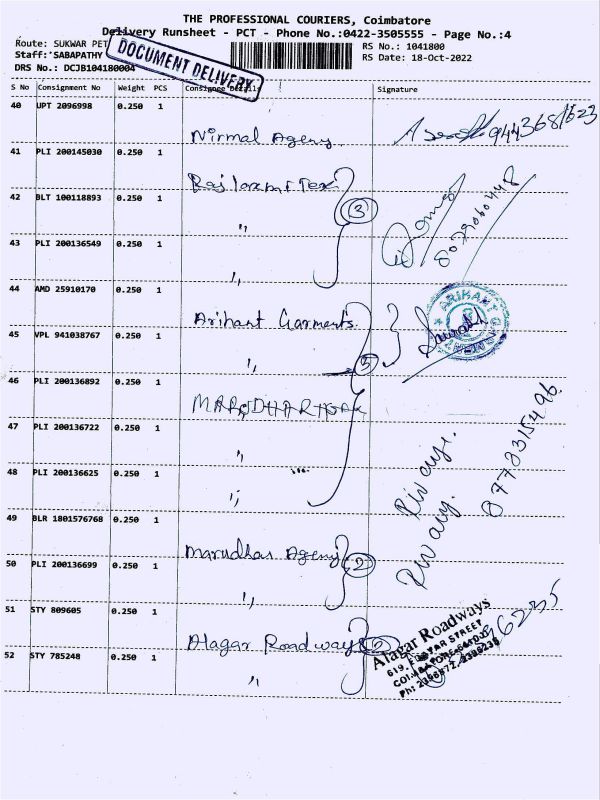 THE PROFESSIONAL COURIERS, Coimbatore
Delivery Runsheet - PCT - Phone No.:0422-3505555 - Page No.:4
Route: SUKWAR PET
RS No.: 1041800
Staff: SABAPATHY
RS Date: 18-Oct-2022
DRS No.: DCJB104180004
DOCUMENT DELIVERY
S No Consignment No Weight PCS Consignee Details Signature
40 UPT 2096998 0.250 1
Nirmal Agency
41 PLI 200145030 0.250 1
Rajlaxmi Tex
42 BLT 100118893 0.250 1
③
"
43 PLI 200136549 0.250 1
"
8079060448
44 AMD 25910170 0.250 1
Arihant Garments
ARIHANT
45 VPL 941038767 0.250 1
"
46 PLI 200136892 0.250 1
47 PLI 200136722 0.250 1
"
48 PLI 200136625 0.250 1
"
49 BLR 1801576768 0.250 1
Marudhar Agency
50 PLI 200136699 0.250 1
②
"
51 STY 809605 0.250 1
Alagar Roadways
②
52 STY 785248 0.250 1
"
Alagar Roadways
STREET